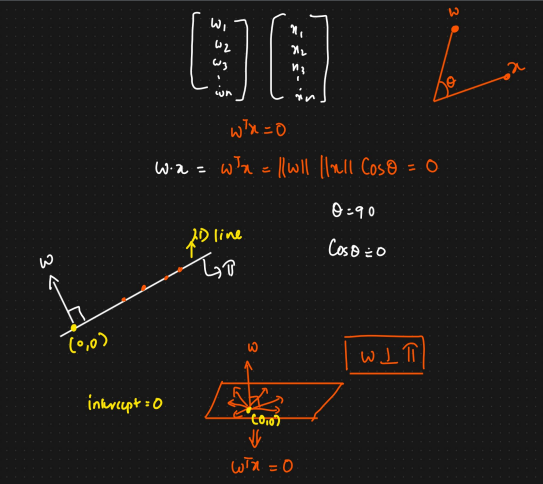 w₁ x₁
w₂ x₂
w₃ x₃
⋮ ⋮
wn xn
w
x
θ
wᵀx=0
w·x = wᵀx = ||w|| ||x|| Cosθ = 0
θ=90
Cosθ=0
2D line
π
w
(0,0)
w
w ⊥ π
intercept=0
(0,0)
wᵀx = 0